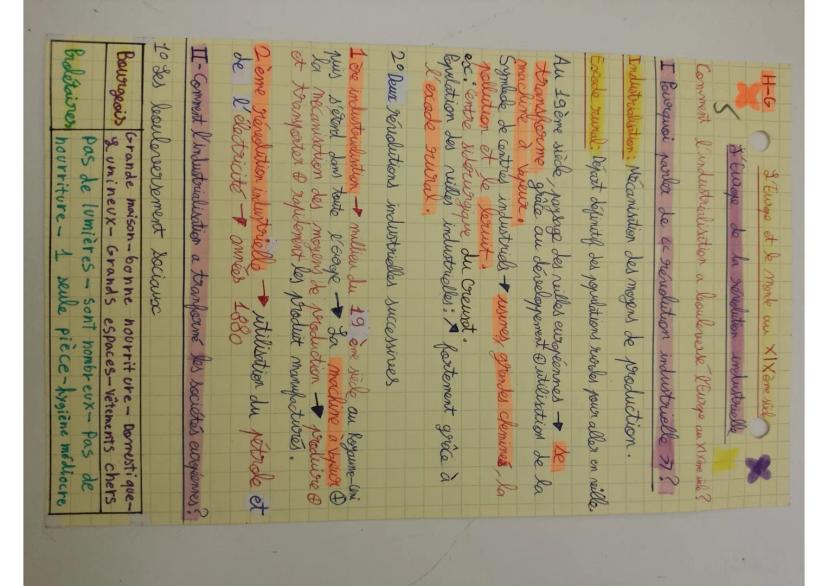 H-G
L'Europe et le monde au XIXème siècle
L'Europe de la révolution industrielle
Comment l'industrialisation a bouleversé l'Europe au XIXème siècle ?
I Pourquoi parler de « révolution industrielle » ?
Industrialisation: Mécanisation des moyens de production.
Exode rural: Départ définitif des populations rurales pour aller en ville.
Au 19ème siècle, paysage des villes européennes → se
transforme grâce au développement ⊕ utilisation de la
machine à vapeur.
Symbole de centres industriels → usines, grandes cheminées, la
pollution et le
ex: centre sidérurgique du Creusot.
Population des villes industrielles: ↗ fortement grâce à
l'exode rural.
2° Deux révolutions industrielles successives
1ère industrialisation → milieu du 19ème siècle au Royaume-Uni
puis s'étend dans toute l'Europe → La machine à vapeur ⊕
La mécanisation des moyens de production → produire ⊕
et transporter ⊕ rapidement les produit manufacturés.
2ème révolution industrielle → utilisation du pétrole et
de l'électricité → années 1880
II - Comment l'industrialisation a transformé les sociétés européennes ?
1° Les bouleversement sociaux
Bourgeois Grande maison - bonne nourriture - Domestique -
Lumineux - Grands espaces - Vêtements chers
Prolétaires Pas de lumières - sont nombreux - Pas de
nourriture - 1 seule pièce - hygiène médiocre